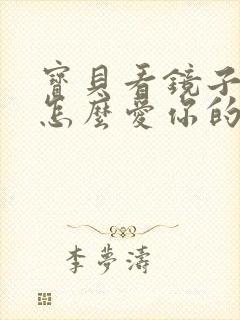 寶貝看鏡子
怎麼愛你的
李夢濤